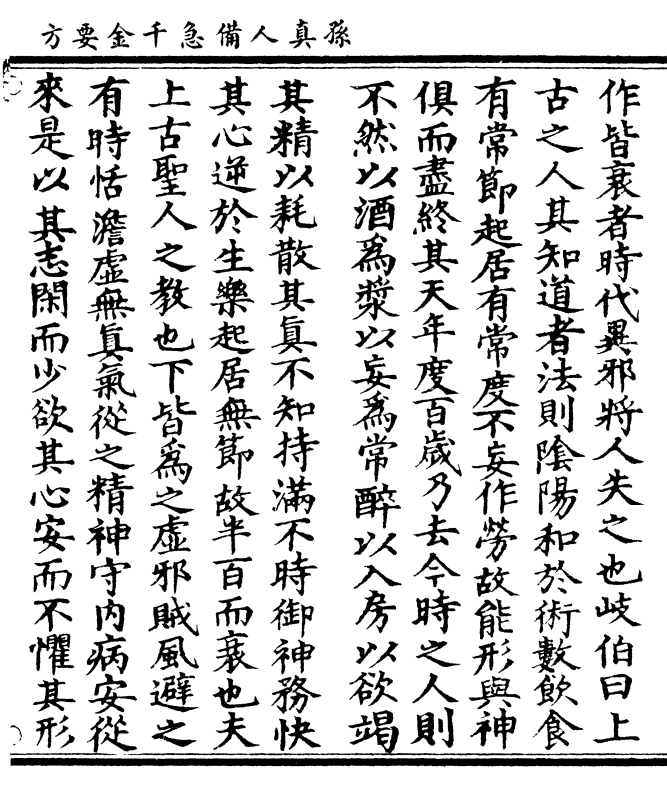 孫真人備急千金要方
作皆衰者時代異邪將人失之也岐伯曰上
古之人其知道者法則陰陽和於術數飲食
有常節起居有常度不妄作勞故能形與神
俱而盡終其天年度百歲乃去今時之人則
不然以酒為漿以妄為常醉以入房以欲竭
其精以耗散其真不知持滿不時御神務快
其心逆於生樂起居無節故半百而衰也夫
上古聖人之教也下皆為之虛邪賊風避之
有時恬澹虛無真氣從之精神守內病安從
來是以其志閑而少欲其心安而不懼其形